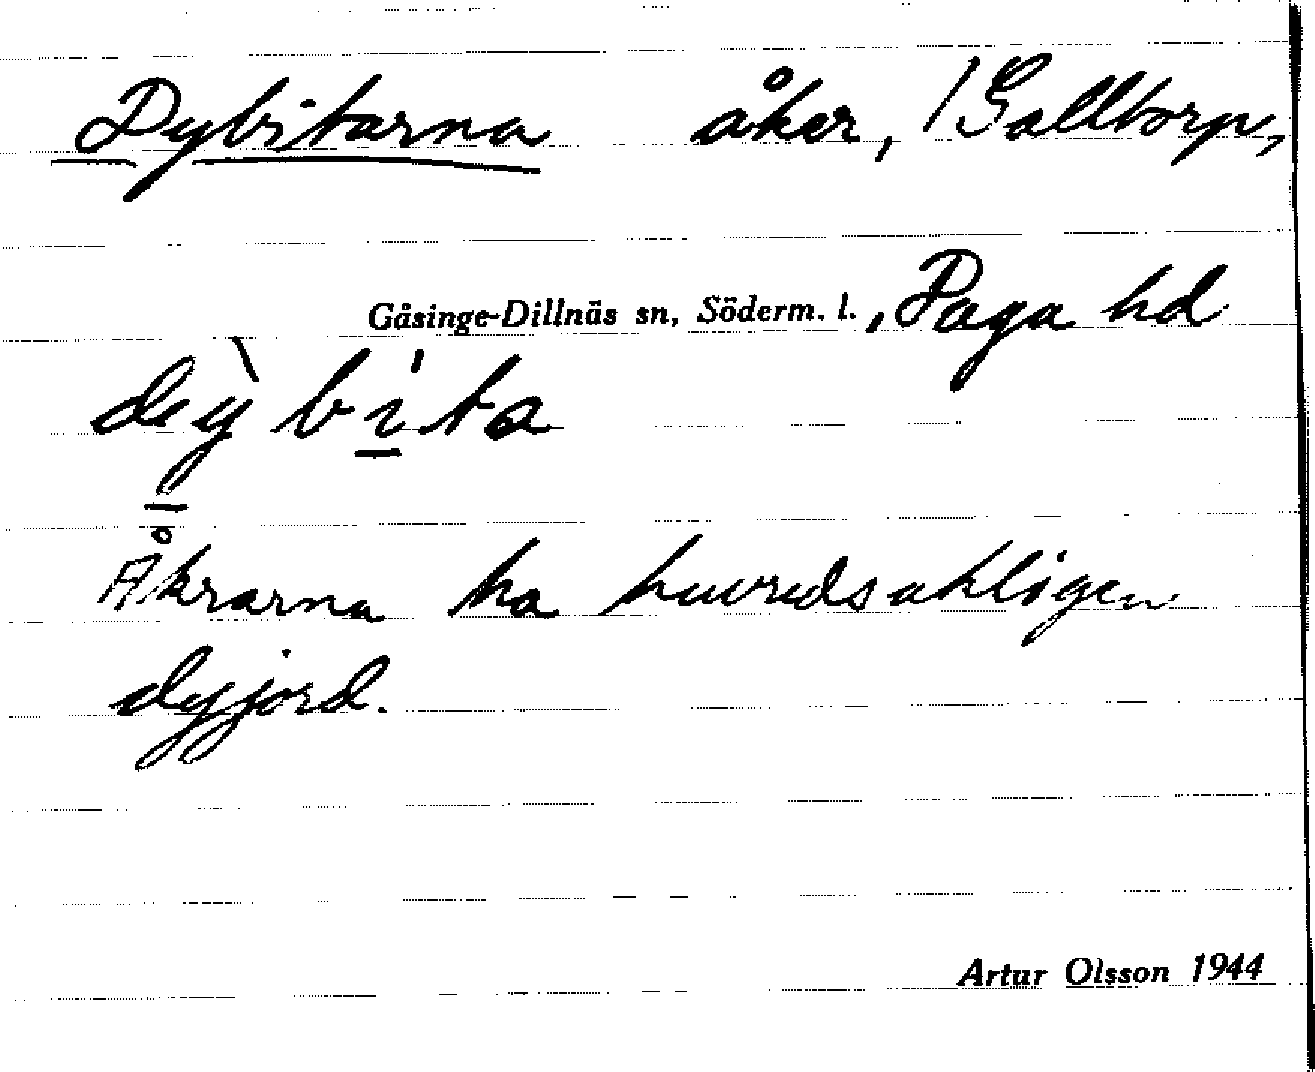 Dybitarna åker, / Galltorp,
Gåsinge-Dillnäs sn, Söderm. l., Daga hd
dỳ̱ bí̱ta
Åkrarna ha huvudsakligen
dyjord.
Artur Olsson 1944